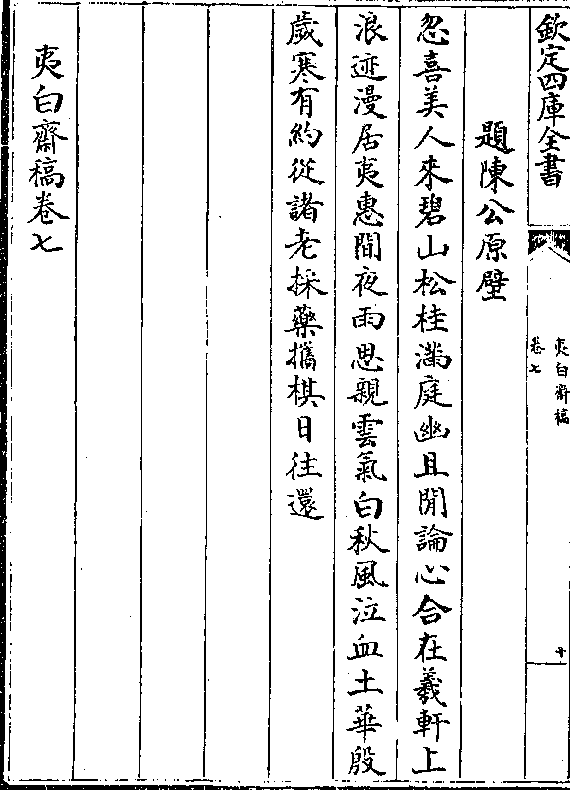 欽定四庫全書
夷白齋稿
卷七
十
題陳公原壁
忽喜美人來碧山松桂滿庭幽且閒論心合在羲軒上
浪迹漫居夷惠間夜雨思親雲氣白秋風泣血土華殷
歲寒有約從諸老採藥攜棋日往還
夷白齋稿卷七